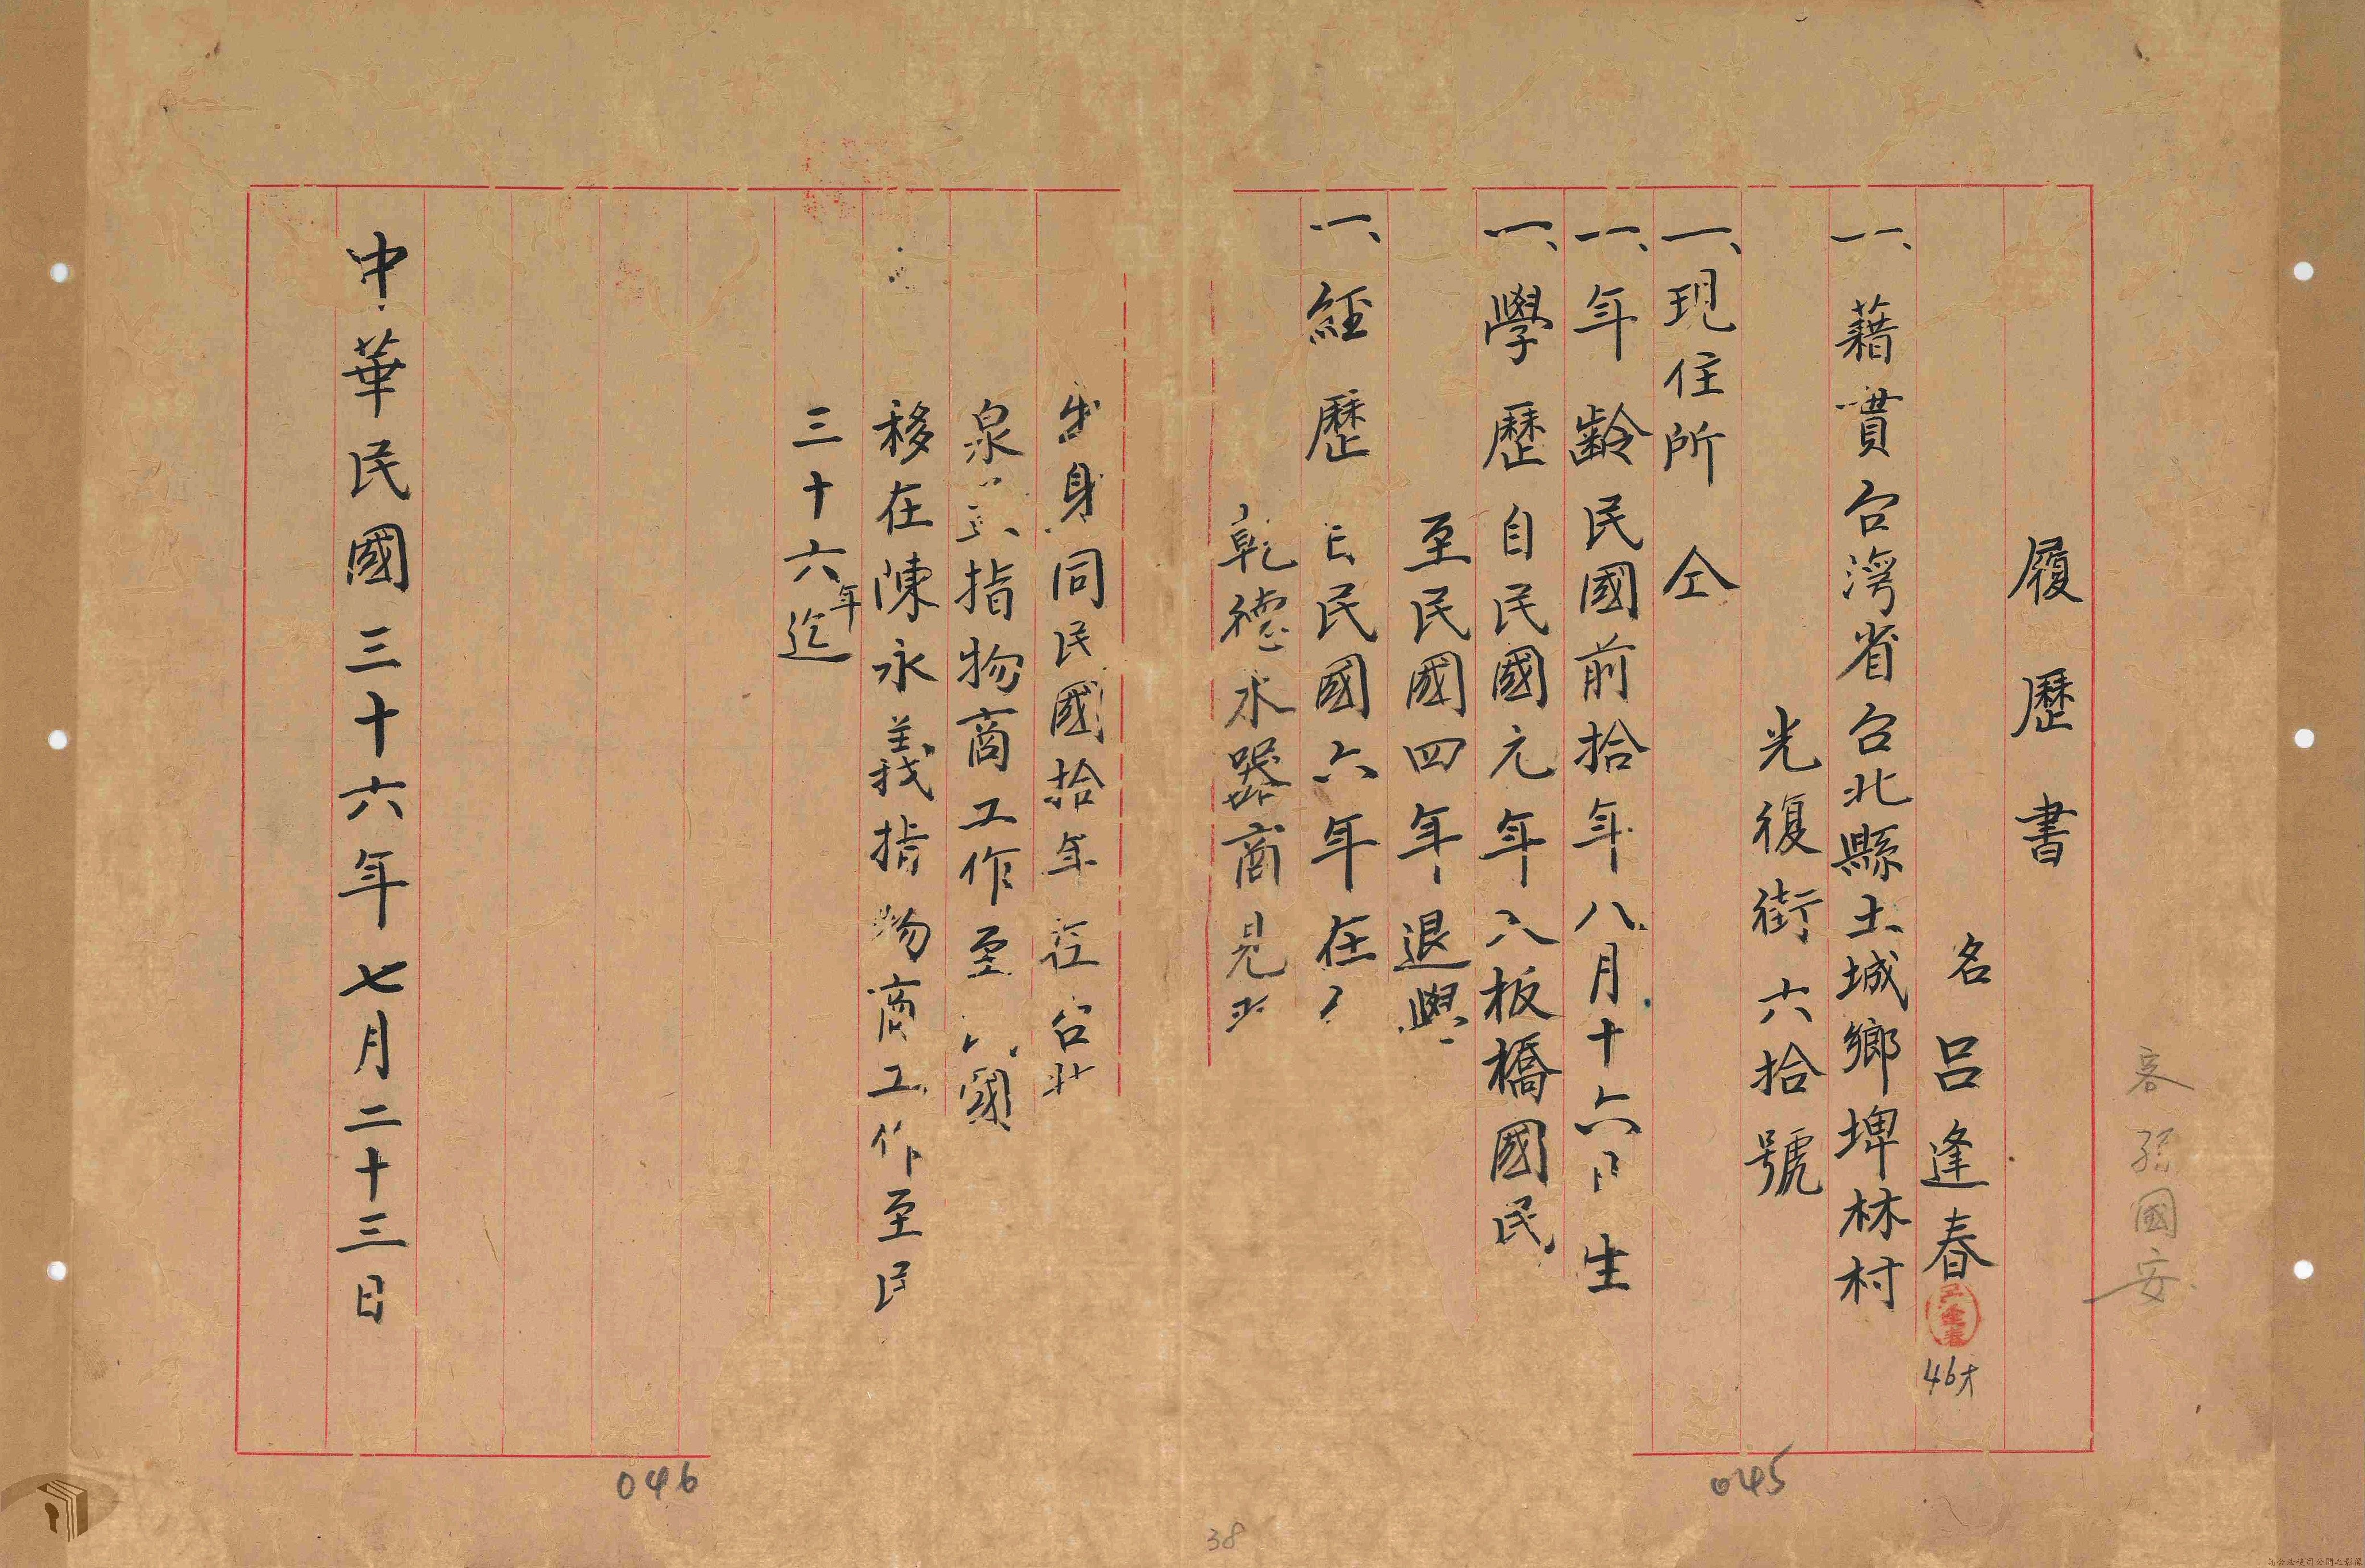 履歷書
名 呂逢春 46才
一、藉貫台灣省台北縣土城鄉埤林村
光復街六拾號
一、現住所 仝
一、年齡民國前拾年八月十六日生
一、學歷自民國元年入板橋國民
至民國四年退學
一、經歷自民國六年在
乾德水器商見
出身同民國拾年在台北
泉 指物商工作至 國
移在陳永義指物商工作至民
三十六年迄
中華民國三十六年七月二十三日
國安
045
046
38